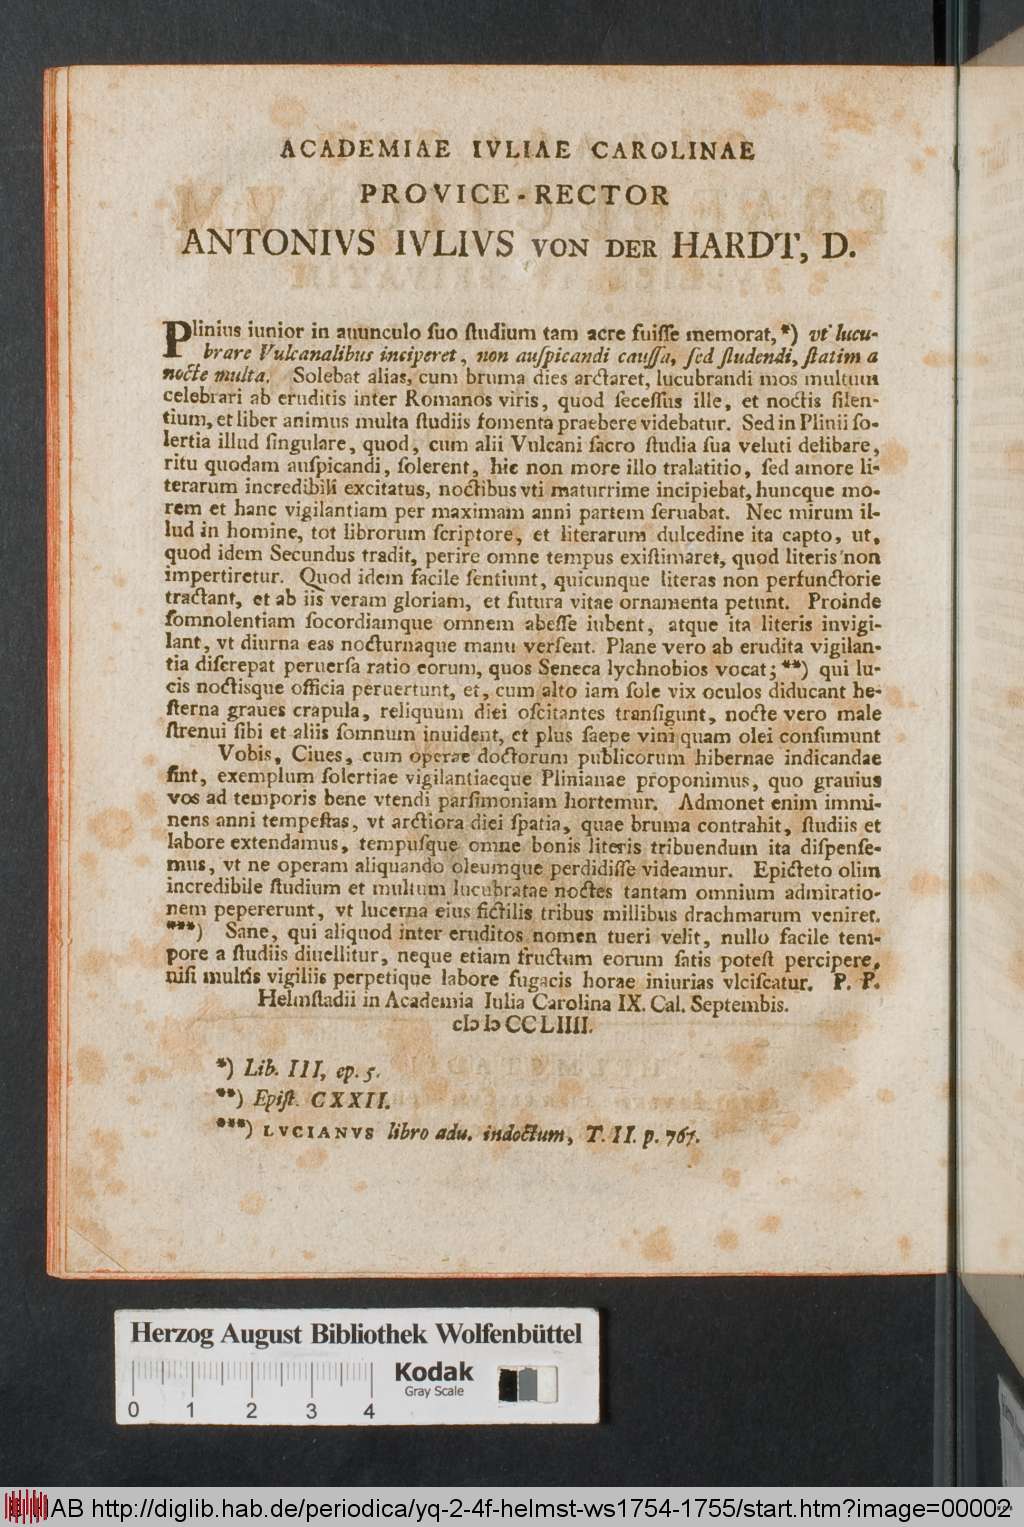 ACADEMIAE IVLIAE CAROLINAE
PROVICE-RECTOR
ANTONIVS IVLIVS VON DER HARDT, D.
Plinius iunior in auunculo ſuo ſtudium tam acre fuiſſe memorat,*) vt lucu-
brare Vulcanalibus inciperet, non auſpicandi cauſſa, ſed ſtudendi, ſtatim a
nocte multa. Solebat alias, cum bruma dies arctaret, lucubrandi mos multum
celebrari ab eruditis inter Romanos viris, quod ſeceſſus ille, et noctis ſilen-
tium, et liber animus multa ſtudiis fomenta praebere videbatur. Sed in Plinii ſo-
lertia illud ſingulare, quod, cum alii Vulcani ſacro ſtudia ſua veluti delibare,
ritu quodam auſpicandi, ſolerent, hic non more illo tralatitio, ſed amore li-
terarum incredibili excitatus, noctibus vti maturrime incipiebat, huncque mo-
rem et hanc vigilantiam per maximam anni partem ſeruabat. Nec mirum il-
lud in homine, tot librorum ſcriptore, et literarum dulcedine ita capto, ut,
quod idem Secundus tradit, perire omne tempus exiſtimaret, quod literis non
impertiretur. Quod idem facile ſentiunt, quicunque literas non perfunctorie
tractant, et ab iis veram gloriam, et futura vitae ornamenta petunt. Proinde
ſomnolentiam ſocordiamque omnem abeſſe iubent, atque ita literis invigi-
lant, vt diurna eas nocturnaque manu verſent. Plane vero ab erudita vigilan-
tia diſcrepat peruerſa ratio eorum, quos Seneca lychnobios vocat; **) qui lu-
cis noctisque officia peruertunt, et, cum alto iam ſole vix oculos diducant he-
ſterna graues crapula, reliquum diei oſcitantes tranſigunt, nocte vero male
ſtrenui ſibi et aliis ſomnum inuident, et plus ſaepe vini quam olei conſumunt
Vobis, Ciues, cum operae doctorum publicorum hibernae indicandae
ſint, exemplum ſolertiae vigilantiaeque Plinianae proponimus, quo grauius
vos ad temporis bene vtendi parſimoniam hortemur. Admonet enim immi-
nens anni tempeſtas, vt arctiora diei ſpatia, quae bruma contrahit, ſtudiis et
labore extendamus, tempuſque omne bonis literis tribuendum ita diſpenſe-
mus, vt ne operam aliquando oleumque perdidiſſe videamur. Epicteto olim
incredibile ſtudium et multum lucubratae noctes tantam omnium admiratio-
nem pepererunt, vt lucerna eius fictilis tribus millibus drachmarum veniret.
***) Sane, qui aliquod inter eruditos nomen tueri velit, nullo facile tem-
pore a ſtudiis diuellitur, neque etiam fructum eorum ſatis poteſt percipere,
niſi multis vigiliis perpetique labore fugacis horae iniurias vlciſcatur. P. P.
Helmſtadii in Academia Iulia Carolina IX. Cal. Septembis.
cIↄ Iↄ CC LIIII.
*) Lib. III, ep. 5.
**) Epiſt. CXXII.
***) LVCIANVS libro adu. indoctum, T. II. p. 767.
Herzog August Bibliothek Wolfenbüttel
Kodak
Gray Scale
0 1 2 3 4
HAB http://diglib.hab.de/periodica/yq-2-4f-helmst-ws1754-1755/start.htm?image=00002